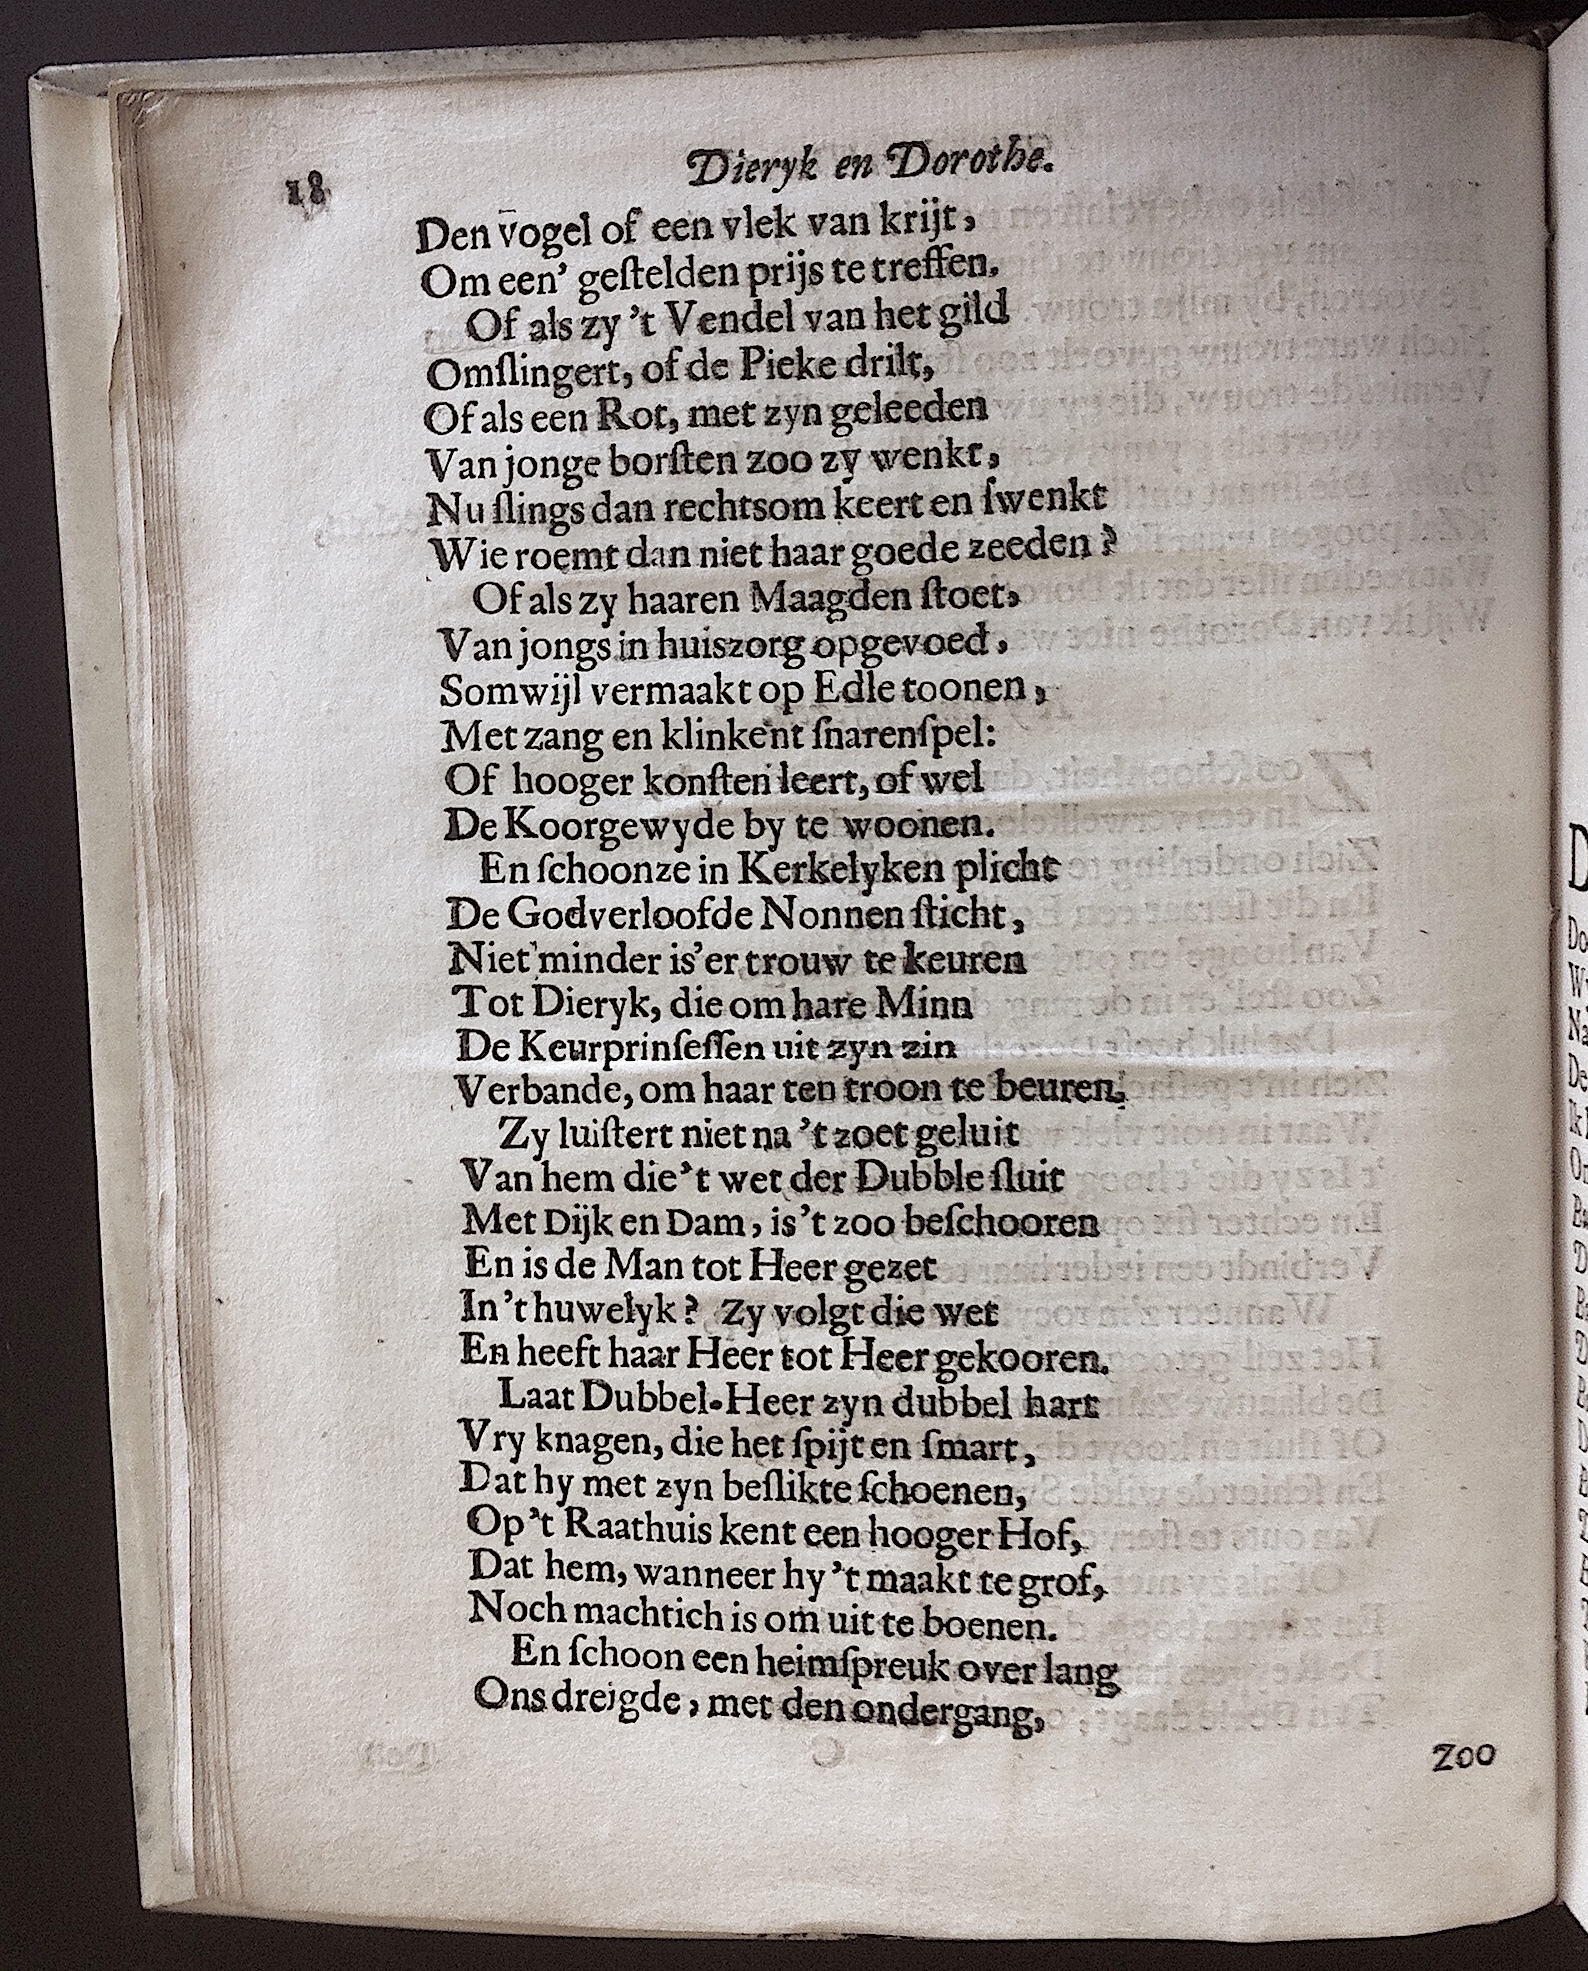 18
Dieryk en Dorothe.
Den vogel of een vlek van krijt,
Om een' geſtelden prijs te treffen.
Of als zy 't Vendel van het gild
Omſlingert, of de Pieke drilt,
Of als een Rot, met zyn geleeden
Van jonge borſten zoo zy wenkt,
Nu ſlings dan rechtsom keert en ſwenkt
Wie roemt dan niet haar goede zeeden?
Of als zy haaren Maagden ſtoet,
Van jongs in huiszorg opgevoed,
Somwijl vermaakt op Edle toonen,
Met zang en klinkent ſnarenſpel:
Of hooger konſten leert, of wel
De Koorgewyde by te woonen.
En ſchoonze in Kerkelyken plicht
De Godverloofde Nonnen ſticht,
Niet minder is'er trouw te keuren
Tot Dieryk, die om hare Minn
De Keurprinſeſſen uit zyn zin
Verbande, om haar ten troon te beuren.
Zy luiſtert niet na 't zoet geluit
Van hem die 't wet der Dubble ſluit
Met Dijk en Dam, is 't zoo beſchooren
En is de Man tot Heer gezet
In 't huwelyk? Zy volgt die wet
En heeft haar Heer tot Heer gekooren.
Laat Dubbel-Heer zyn dubbel hart
Vry knagen, die het ſpijt en ſmart,
Dat hy met zyn beſlikte ſchoenen,
Op 't Raathuis kent een hooger Hof,
Dat hem, wanneer hy 't maakt te grof,
Noch machtich is om uit te boenen.
En ſchoon een heimſpreuk over lang
Ons dreigde, met den ondergang,
Zoo